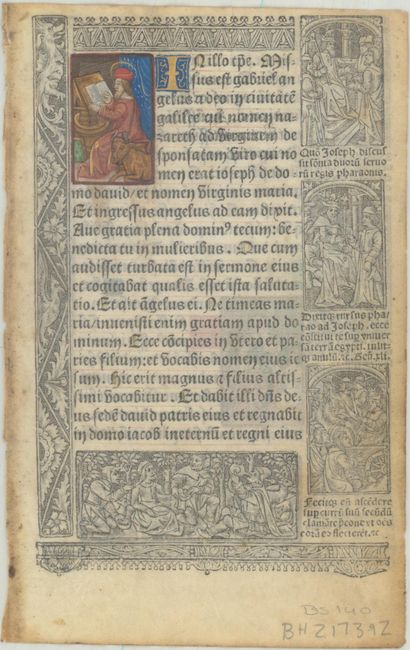 IN illo tpe. Mis
sus est gabriel an
gelus a deo in civitatē
galilee cui nomen na-
zareth ad virginem de
sponsatam viro cui no
men erat ioseph de do
mo david / et nomen virginis maria.
Et ingressus angelus ad eam dixit.
Ave gratia plena domin⁹ tecum: be-
nedicta tu in mulieribus. Que cum
audisset turbata est in sermone eius
et cogitabat qualis esset ista saluta-
tio. Et ait āgelus ei. Ne timeas ma-
ria / invenisti enim gratiam apud do
minum. Ecce cōcipies in utero et pa-
ries filium: et vocabis nomen eius ie
sum. Hic erit magnus & filius altis-
simi vocabitur. Et dabit illi dn̄s de-
us sedē david patris eius et regnabit
in domo iacob in eternū et regni eius
Quō Joseph discus
sit sōnia duorū servo
rū regis pharaonis.
Dixitqz rursus pha
rao ad Joseph. ecce
cōstitui te sup univer
sā terrā egypti. tulit
qz anulū. &c. Gen. xli.
Fecitqz eū ascēdere
sup currū suū secūdū
clamāte precone ut oēs
corā eo flecterēt. &c
BS 140
BH 217392